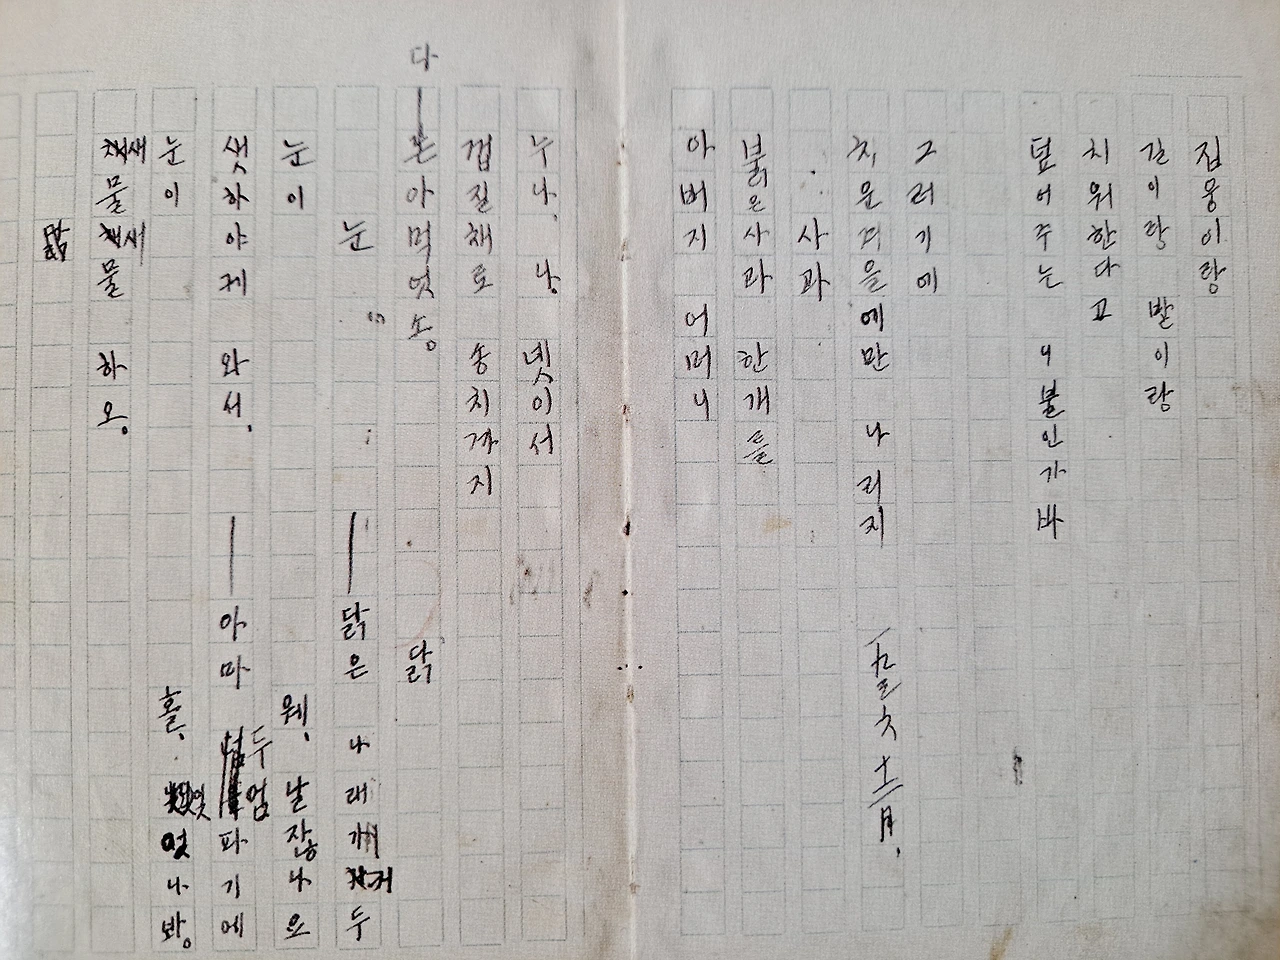 집웅이랑
길이랑 밭이랑
치워한다고
덮어주는 니불인가바
그러기에
치운겨을에만 나리지
一九三六 十二月.
사과
붉은사과 한개를
아버지 어머니
누나, 나, 넷이서
껍질채로 송치까지
다—논아먹엇소。
눈
눈이
샛하야케 와서,
눈이
새물새물 하오。
닭
—닭은 나래가 커두
웨, 날잖나요
—아마 두엄 파기에
홀, 잊엇나봐。